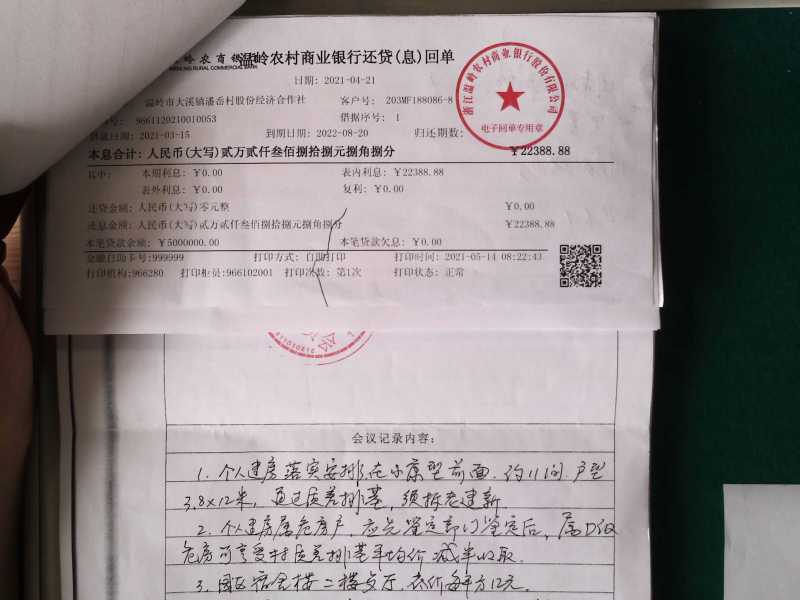 岭农商银行
温岭农村商业银行还贷(息)回单
日期: 2021-04-21
温岭市大溪镇潘岙村股份经济合作社 客户号: 203MF188086-8
号: 9661120210010053 借据序号: 1
借款日期: 2021-03-15 到期日期: 2022-08-20 归还期数:
本息合计: 人民币(大写)贰万贰仟叁佰捌拾捌元捌角捌分 ￥22388.88
其中: 本期利息: ￥0.00 表内利息: ￥22388.88
表外利息: ￥0.00 复利: ￥0.00
还贷金额: 人民币(大写)零元整 ￥0.00
还息金额: 人民币(大写)贰万贰仟叁佰捌拾捌元捌角捌分 ￥22388.88
本笔贷款余额: ￥5000000.00 本笔贷款欠息: ￥0.00
金融自助卡号:999999 打印方式: 自助打印 打印时间: 2021-05-14 08:22:43
打印机构:966280 打印柜员:966102001 打印次数: 第1次 打印状态: 正常
浙江温岭农村商业银行股份有限公司
电子回单专用章
会议记录内容:
1. 个人建房落实安排在小康型前面.约11间.户型
3.8×12米, 通过质差排基, 须拆老建新
2. 个人建房属危房户, 应先鉴定部门鉴定后, 属D级
危房可享受 质差排基平均价 减半收取.
3. 园区宿舍楼二楼 厅. 价每平方12元.